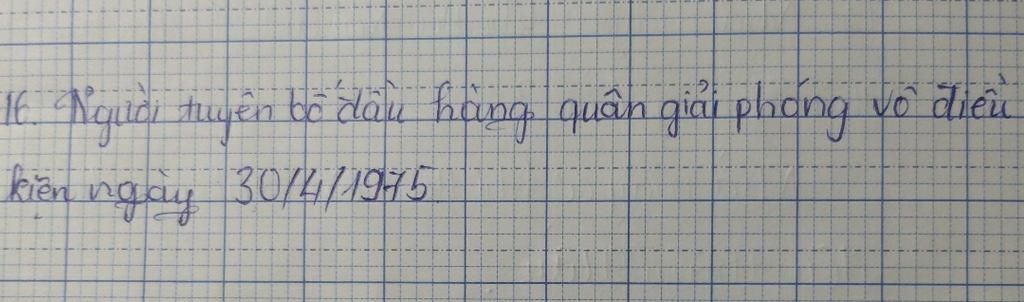 16. Người tuyên bố đầu hàng quân giải phóng vô điều
kiện ngày 30/4/1975